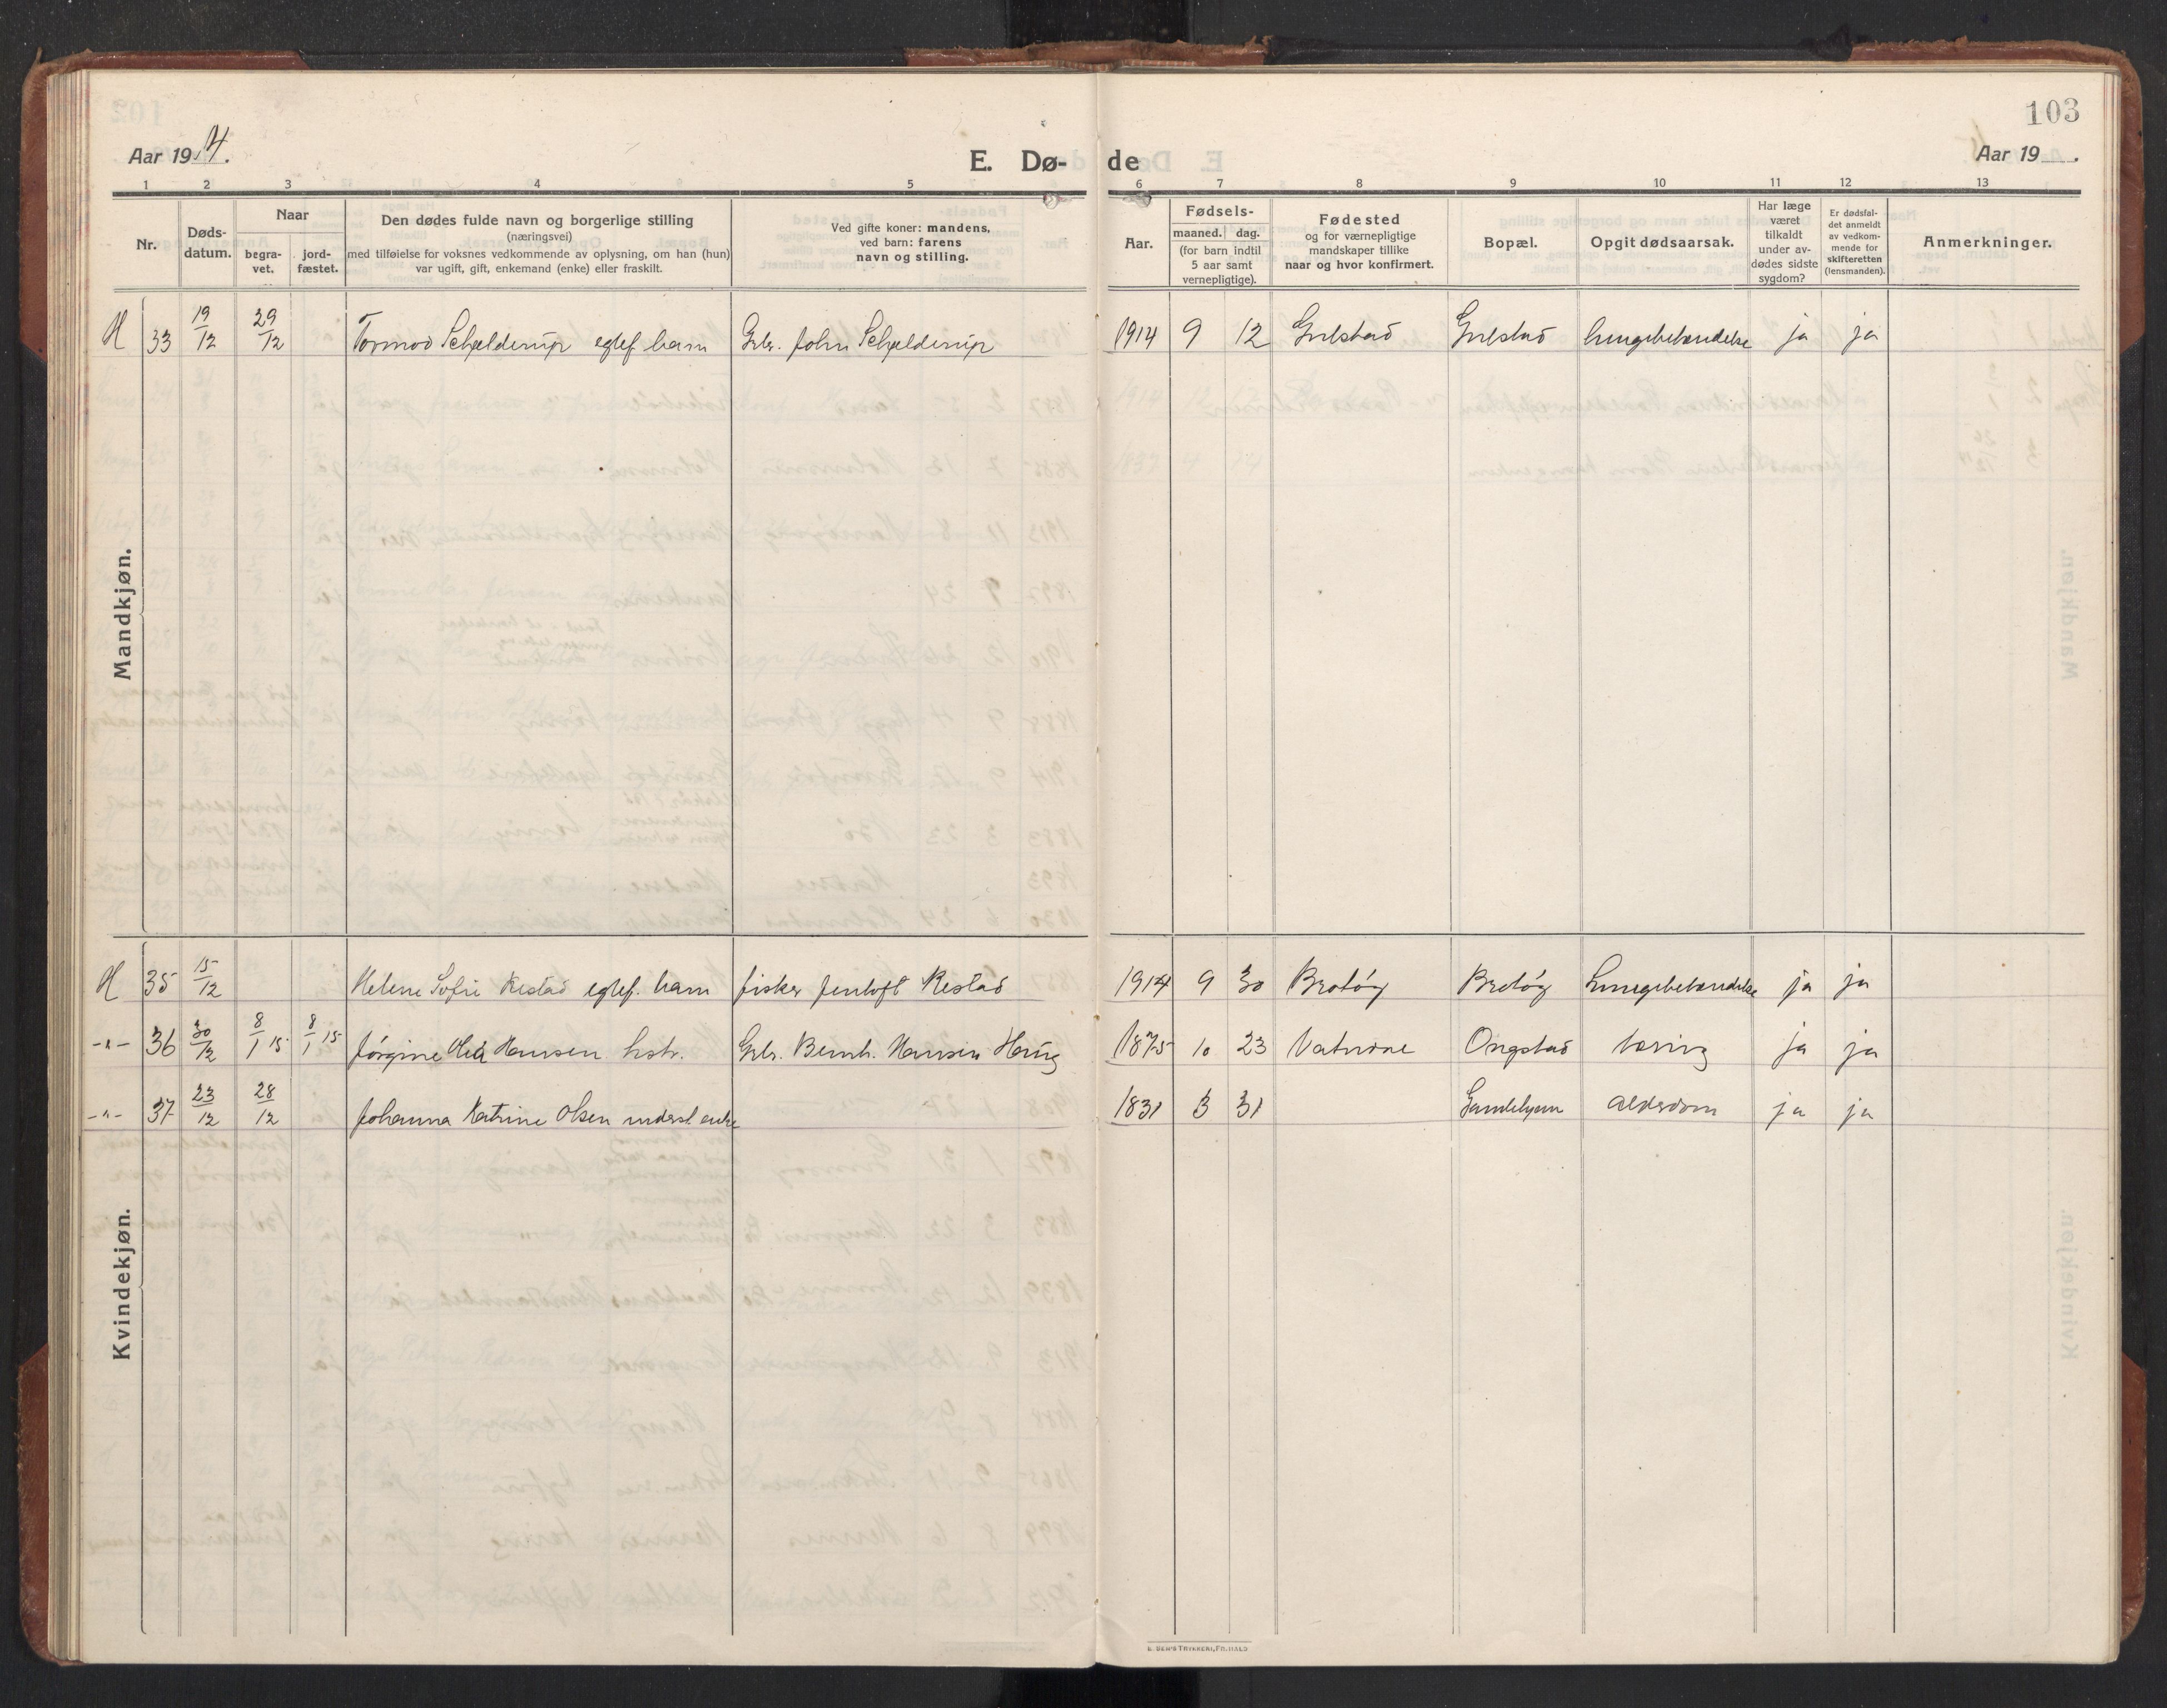 103
Aar 1914.
E. Dø-
de
Aar 19 .
1 2 3 4 5 6 7 8 9 10 11 12 13
Nr.
Døds-
datum.
Naar
begra-
vet.
jord-
fæstet.
Den dødes fulde navn og borgerlige stilling
(næringsvei)
med tilføielse for voksnes vedkommende av oplysning, om han (hun)
var ugift, gift, enkemand (enke) eller fraskilt.
Ved gifte koner: mandens,
ved barn: farens
navn og stilling.
Aar.
Fødsels-
maaned. dag.
(for barn indtil
5 aar samt
vernepligtige).
Fødested
og for værnepligtige
mandskaper tillike
naar og hvor konfirmert.
Bopæl.
Opgit dødsaarsak.
Har læge
været
tilkaldt
under av-
dødes sidste
sygdom?
Er dødsfal-
det anmeldt
av vedkom-
mende for
skifteretten
(lensmanden).
Anmerkninger.
Mandkjøn.
H 33 19/12 29/12 Tormod Schjelderup egtef. barn Gbr. John Schjelderup 1914 9 12 Gulstad Gulstad lungebetændelse ja ja
Kvindekjøn.
H 35 15/12 Helene Sofie Restad egtef. barn fisker Jentoft Restad 1914 9 30 Brotøy Brotøy Lungebetændelse ja ja
-"- 36 30/12 8/1 15 8/1 15 Jørgine Hansen hstr. Gbr. Bernh. Hansen Haug 1875 10 23 Vatnöne Ongstad tæring ja ja
-"- 37 23/12 28/12 Johanna Katrine Olsen underst. enke 1831 3 31 Gamlehjem Alderdom ja ja
TRYKKERI, FR. HALD